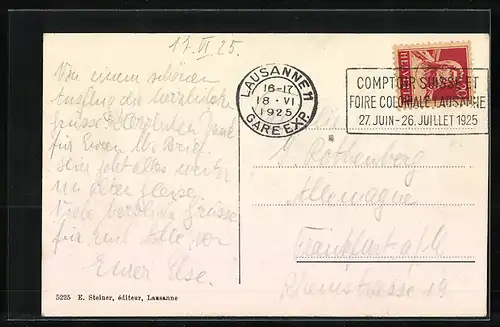 17.VI.25.
Von einem schönen
Ausflug die herzlichsten
Grüsse. Herzlichen Dank
für Euren lb. Brief.
geht alles weiter
im alten
Viele herzliche Grüsse
für Euch Alle von
Eurer Else.
5225 E. Steiner, éditeur, Lausanne
LAUSANNE 11
16-17
18·VI
1925
GARE EXP.
HELVETIA
COMPTOIR SUISSE ET
FOIRE COLONIALE LAUSANNE
27. JUIN-26. JUILLET 1925
Rothenberg
Allemagne
Frankfurt a/M
Rheinstrasse 19